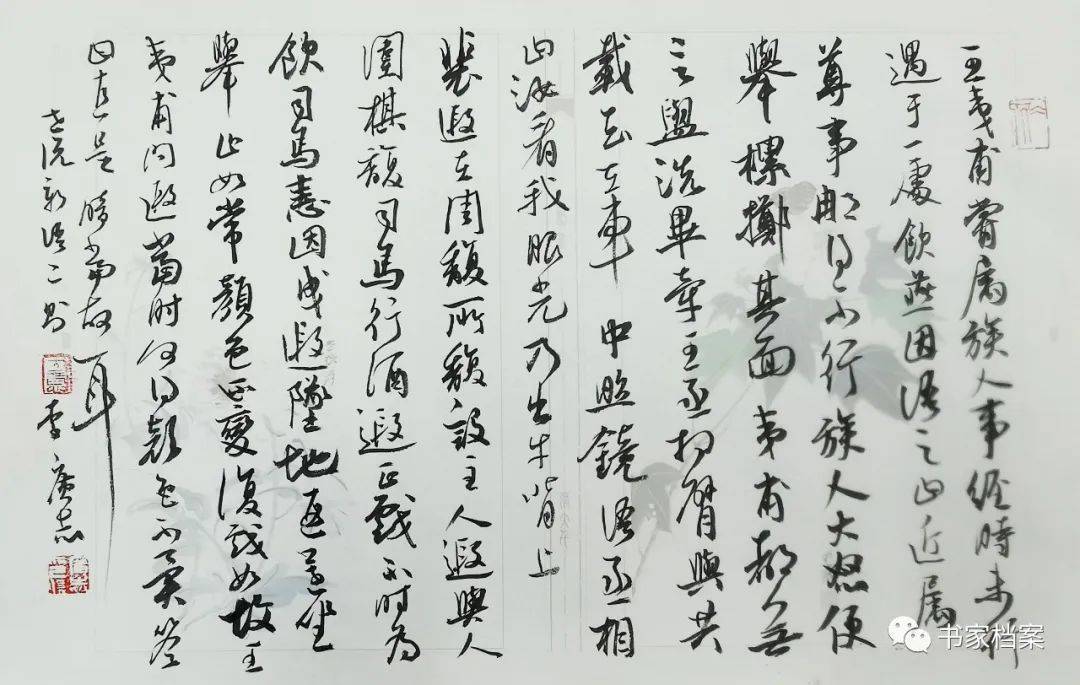 王夷甫嘗屬族人事經時未行
遇于一處飲燕因語之曰近屬
尊事那得不行族人大怒便
舉樏擲其面夷甫都無
言盥洗畢牽王丞相臂與共
載去在車中照鏡語丞相
曰汝看我眼光乃出牛背上
裴遐在周馥所馥設主人遐與人
圍棋馥司馬行酒遐正戲不時為
飲司馬恚因曳遐墜地遐還坐
舉止如常顏色不變復戲如故王
夷甫問遐當時何得顏色不異答
曰直是暗當故耳
世説新語二則 李廣志
书家档案